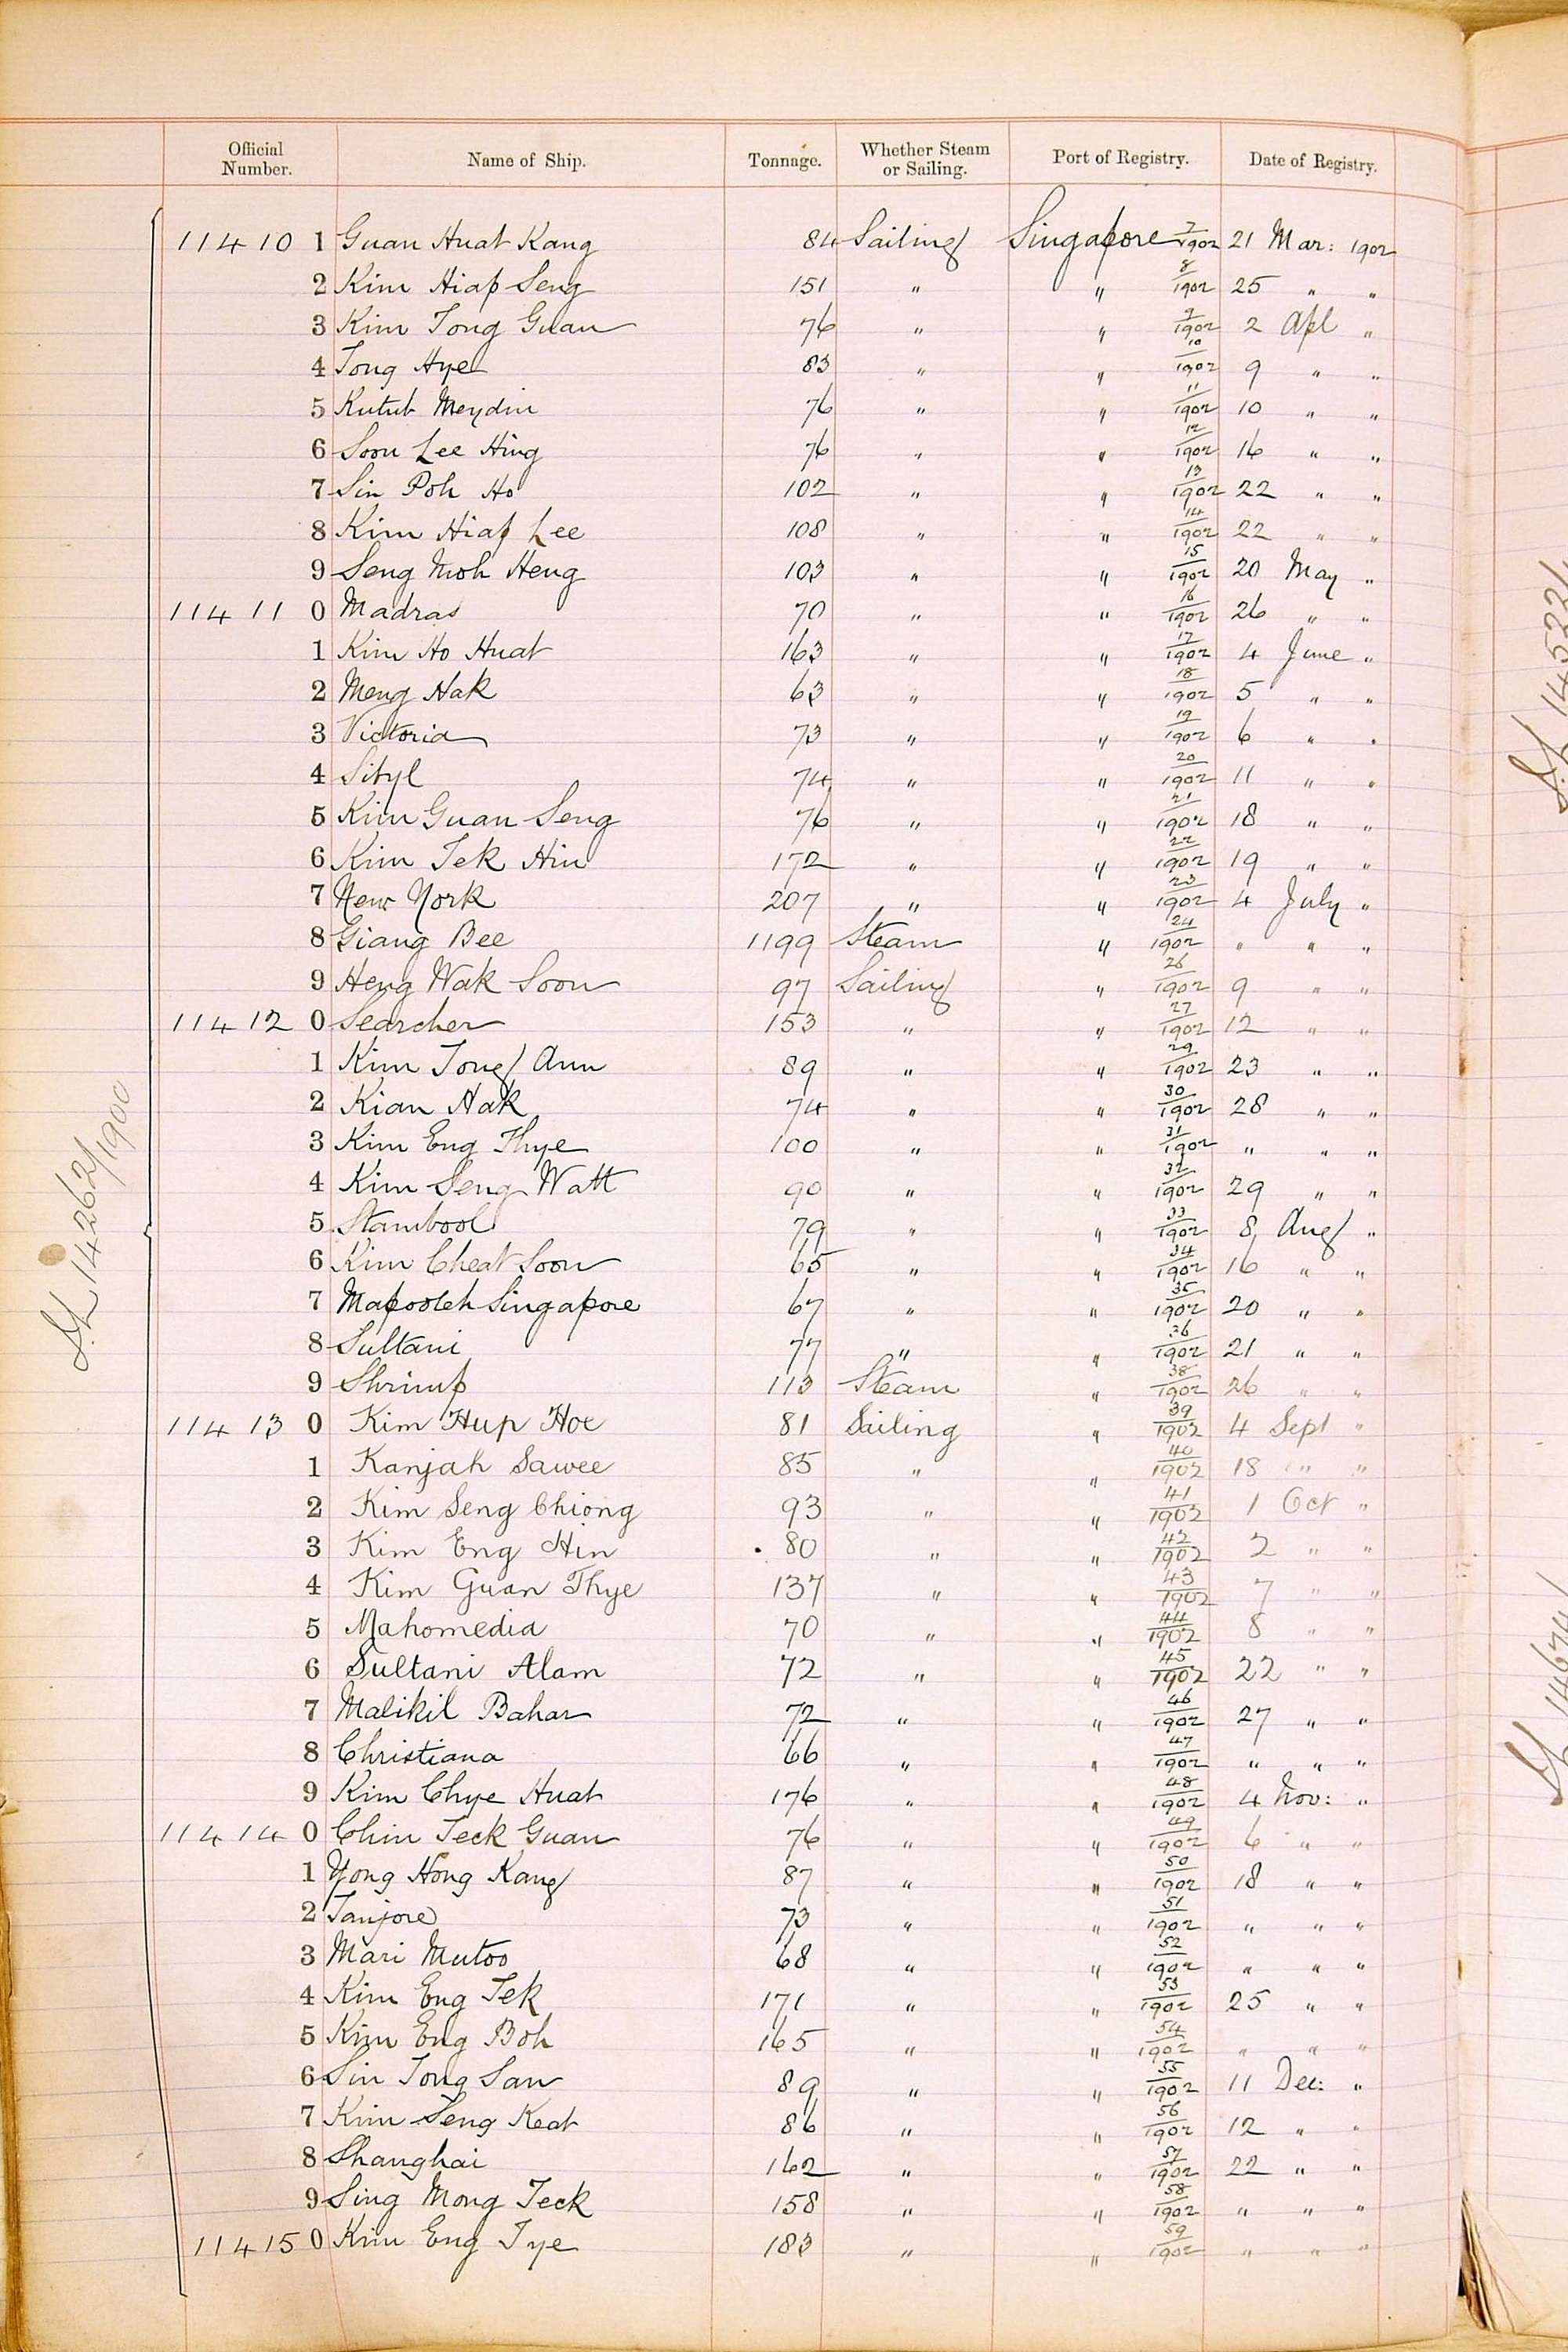 Official Number. Name of Ship. Tonnage. Whether Steam or Sailing. Port of Registry. Date of Registry.
11410 1 Guan Huat Kang 84 Sailing Singapore 7/1902 21 Mar: 1902
2 Kim Hiap Seng 151 " " 8/1902 25 " "
3 Kim Tong Guan 76 " " 9/1902 2 Apl "
4 Tong Hye 83 " " 10/1902 9 " "
5 Kutub Meydin 76 " " 11/1902 10 " "
6 Soon Lee Hing 76 " " 12/1902 16 " "
7 Sin Poh Ho 102 " " 13/1902 22 " "
8 Kim Hiap Lee 108 " " 14/1902 22 " "
9 Seng Moh Heng 103 " " 15/1902 20 May "
11411 0 Madras 70 " " 16/1902 26 " "
1 Kim Ho Huat 163 " " 17/1902 4 June "
2 Meng Hak 63 " " 18/1902 5 " "
3 Victoria 73 " " 19/1902 6 " "
4 Sibyl 74 " " 20/1902 11 " "
5 Kim Guan Seng 76 " " 21/1902 18 " "
6 Kim Tek Hin 172 " " 22/1902 19 " "
7 New York 207 " " 23/1902 4 July "
8 Giang Bee 1199 Steam " 24/1902 " " "
9 Heng Wak Soon 97 Sailing " 26/1902 9 " "
11412 0 Searcher 153 " " 27/1902 12 " "
1 Kim Tong Ann 89 " " 29/1902 23 " "
2 Kian Hak 74 " " 30/1902 28 " "
3 Kim Eng Thye 100 " " 31/1902 " " "
4 Kim Seng Watt 90 " " 32/1902 29 " "
5 Stambool 79 " " 33/1902 8 Aug "
6 Kim Cheat Soon 65 " " 34/1902 16 " "
7 Mapooleh Singapore 67 " " 35/1902 20 " "
8 Sultani 77 " " 36/1902 21 " "
9 Shrimp 113 Steam " 38/1902 26 " "
11413 0 Kim Hup Hoe 81 Sailing " 39/1902 4 Sept "
1 Kanjah Sawee 85 " " 40/1902 18 " "
2 Kim Seng Chiong 93 " " 41/1902 1 Oct "
3 Kim Eng Hin 80 " " 42/1902 2 " "
4 Kim Guan Thye 137 " " 43/1902 7 " "
5 Mahomedia 70 " " 44/1902 8 " "
6 Sultani Alam 72 " " 45/1902 22 " "
7 Malikil Bahar 72 " " 46/1902 27 " "
8 Christiana 66 " " 47/1902 " " "
9 Kim Chye Huat 176 " " 48/1902 4 Nov: "
11414 0 Chin Teck Guan 76 " " 49/1902 6 " "
1 Yong Hong Kang 87 " " 50/1902 18 " "
2 Tanjore 73 " " 51/1902 " " "
3 Mari Mutoo 68 " " 52/1902 " " "
4 Kim Eng Tek 171 " " 53/1902 25 " "
5 Kim Eng Boh 165 " " 54/1902 " " "
6 Sin Tong San 89 " " 55/1902 11 Dec: "
7 Kim Seng Keat 86 " " 56/1902 12 " "
8 Shanghai 162 " " 57/1902 22 " "
9 Sing Mong Teck 158 " " 58/1902 " " "
11415 0 Kim Eng Tye 183 " " 59/1902 " " "
14262/1900